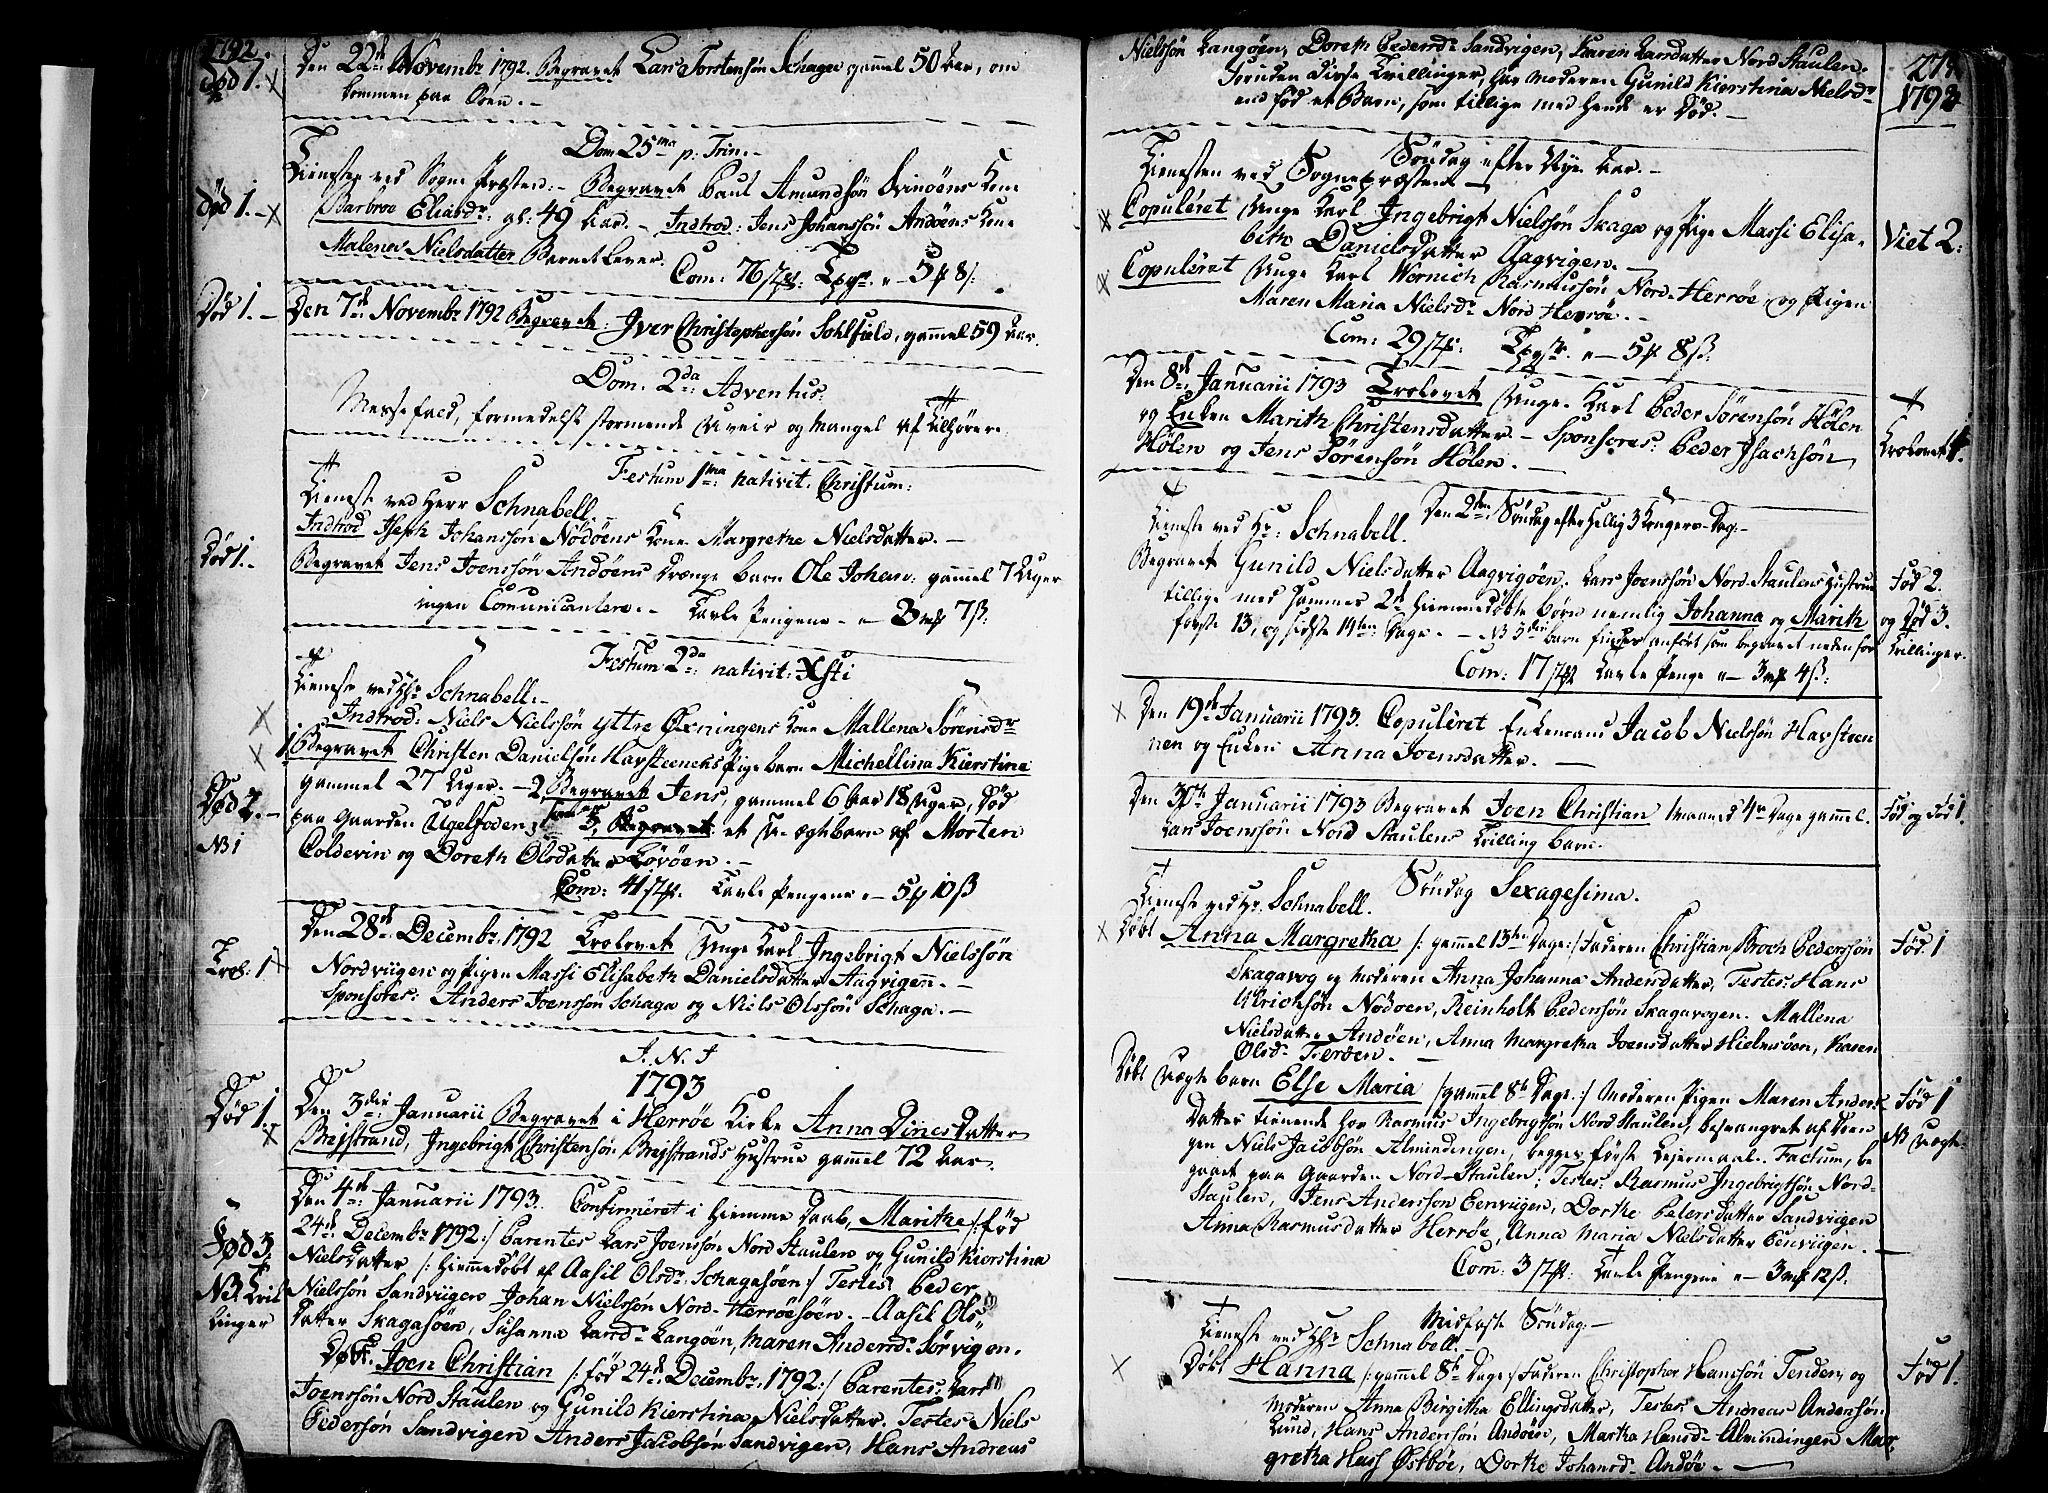 1792.
Død 1.
Den 22de Novembr 1792. Begravet Lars Torstensøn Schage gammel 50 Aar, om
kommen paa Søen. -
Dom 25ma p: Trin. -
Tieneste ved Sogne Præsten: - Begravet Paul Amundsøn Kone
Død 1. -
Barbroe Eliasdr: gl: 49 Aar. - Introd: Jens Johanssøn Andøens Kone
Malena Nielsdatter Barnet lever.
Com: 76
Død 1. -
Den 7de Novembr 1792 Begravet: Iver Christophersøn Sohlfield, gammel 59 Aar.
Dom: 2da Adventus.
Messefald, formedelst stormende Uveir og Mangel af Tilhørere
Festum 1ma: nativit: Christum:
Tieneste ved Herr Schnabell
Introd Johanssøn Nødøens Kone Margrethe Nielsdatter. -
Død 1. -
Begravet Jens Joenssøn Andøens Drænge barn Ole Johan: gammel 7 Uger
ingen Comunicantere. - Tavle Pengene - 3 7ß:
Festum 2da: nativit: Xsti
Tieneste ved Hr Schnabell: -
Introd: Niels Nielssøn yttre Øxningens Kone Mallena Sørensdr
1 Begravet Christen Danielsøn Havsteeneks Pige barn Michellina Kierstina
gammel 27 Uger. - 2 Begravet Jens, gammel 6 Aar 18 Uger, død
Død 2. -
paa Gaarden Ugelfoden; 3, Begravet et U-ægte barn af Morten
NB 1
Coldevin og Doreth Olsdatter Løvøen. -
Com: 41 Tavle Pengene - 5 10ß
Den 28de Decembr 1792 Trolovet Unge Karl Ingebrigt Nielssøn
Trol: 1
Nordviigen og Pigen Massi Elisabeth Danielsdatter Aagvigen. -
Sponsores: Anders Joenssøn Schage og Niels Olssøn Schage. -
I. N. I
1793
Død 1.
Den 3die Januarii Begravet i Herrøe Kirke Anna Dines Datter
Brejstrand, Ingebrigt Christensøn Brejstrands Hustrue gammel 72 Aar.
Den 4de Januarii 1793. Confirmeret i Hiemme Daab, Marithe /: fød
24de Decembr 1792:/ Parentes Lars Joenssøn Nord Staulen og Gunild Kierstina
Fød 3.
Nielsdatter /: hiemmedøbt af Aasil Olsdr Schagasøen:/ Testes: Peder
NB. Tril
Nielssøn Sandviigen Johan Nielssøn Nord-Herrøesøen. - Aasil Ols
linger
datter Skagasøen, Susanna Larsdr Langøen, Maren Andersdr Sørvigen.
Døbt. Joen Christian /: fød 24de Decembr 1792:/ Parentes: Lars
Joenssøn Nord Staulen og Gunild Kierstina Nielsdatter. Testes Niels
Pedersøn Sandvigen Anders Jacobsøn Sandvigen, Hans Andreas
Nielssøn Langøen, Doreth Pedersdr Sandvigen, Karen Larsdatter Nord Staulen.
Foruden disse Trillinger, har Moderen Gunild Kierstina Nielsdr
end fød et Barn, som tillige med hende er død. -
1793
Søndag efter Nye Aar. -
Tienesten ved Sognepræsten -
Copuleret Unge Karl Ingebrigt Nielssøn Skaga og Pige Massi Elisa-
Viet 2:
beth Danielsdatter Aagvigen. -
Copuleret Unge Karl Wernich Rasmussøn Nord-Herrøe og Pigen
Maren Maria Nielsdr Nord Herrøe. -
Com: 29 - 5 8ß:
Den 8de Januarii 1793 Trolovet Unge Karl Peder Sørensøn Hølen
og Enken Marith Christensdatter - Sponsores: Peder Isachsøn
Trolovet 1.
Hølen og Jens Sørensøn Hølen. -
Den 2den Søndag efter Hellig 3 Kongers-Dag: -
Tieneste ved Hr: Schnabell.
Begravet Gunild Nielsdatter Aagvigøen. Lars Joenssøn Nord-Staulens Hustrue
Fød 2.
tillige med sammes 2de hiemmedøbte børn nemlig Johanna og Marith
og Død 3.
første 13, og sidste 14ten Dage. - NB 3die barn findes anført som begravet nedenfor
Trillinger.
Com: 17 Tavle Penge - 3 4ß:
Den 19de Januarii 1793. Copuleret Enkemand Jacob Nielssøn Havsteen
nen og Enken Anna Joensdatter. -
Den 30te Januarii 1793 Begravet Joen Christian Maaned 4re Dage gammel.
Fød og Død 1.
Lars Joenssøn Nord Staulens Trilling barn.
Søndag Sexagesima.
Tieneste ved Hr. Schnabell.
Døbt Anna Margretha /: gammel 13ten Dage:/ Faderen Christian Broch Pederssøn
Fød. 1
Skagavog og Moderen Anna Johanna Andersdatter, Testes: Hans
Ulrichsøn Nødøen, Reinholt Pedersøn Skagavogen. Mallena
Nielsdatter Andøen, Anna Margretha Joensdatter Hielmsøen, Karen
Olsdr Tierøen. -
Døbt Uægte barn Else Maria /: gammel 8te Dage.:/ Moderen Pigen Maren Anders
Fød 1
Datter tienende hos Rasmus Ingebrigtsøn Nord Staulen, besvangret af Dren
NB Uægte.
gen Niels Jacobsøn Almindingen, begges første Lejermaal. Factum, be
gaaet paa Gaarden Nord-Staulen; Testes: Rasmus Ingebrigtsøn Nord-
Staulen, Jens Andersson Eenviigen, Dorthe Pedersdatter Sandviigen
Anna Rasmusdatter Herrøe, Anna Maria Nielsdatter Eenviigen. -
Com: 3 Tavle Pengene - 3 12ß.
Midfaste Søndag: -
Tieneste ved Hr Schnabell -
Døbt Hanna /: gammel 8te Dage:/ Faderen Christopher Hanssøn Tenden, og
Fød 1.
Moderen Anna Birgitha Ellingsdatter, Testes Andreas Andersøn
Lund, Hans Andersøn Andøen, Martha Hansdr Almindingen Mar-
gretha Hass Østbøe, Dorthe Johansdr Andøe. -